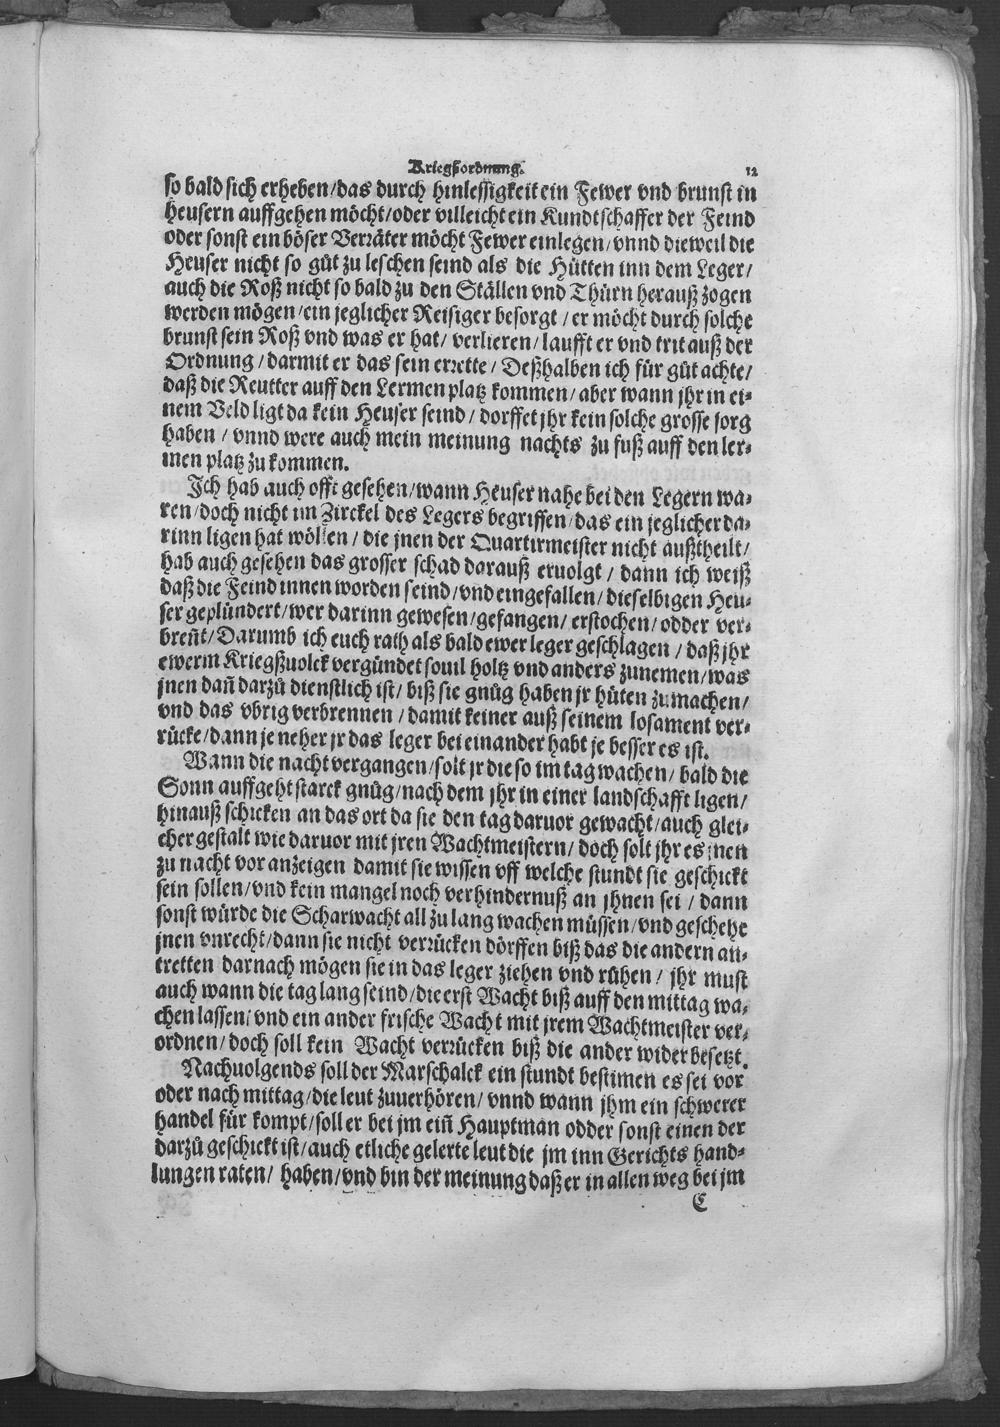 Kriegßordnung. 12
so bald sich erheben / das durch hinlessigkeit ein Fewer vnd brunst in
heusern auffgehen möcht / oder villeicht ein Kundtschaffer der Feind
oder sonst ein böser Verräter möcht Fewer einlegen / vnnd dieweil die
Heuser nicht so gůt zu leschen seind als die Hütten inn dem Leger /
auch die Roß nicht so bald zu den Ställen vnd Thürn herauß zogen
werden mögen / ein jeglicher Reisiger besorgt / er möcht durch solche
brunst sein Roß vnd was er hat / verlieren / laufft er vnd trit auß der
Ordnung / darmit er das sein errette / Deßhalben ich für gůt achte /
daß die Reutter auff den Lermen platz kommen / aber wann jhr in ei-
nem Veld ligt da kein Heuser seind / dorffet jhr kein solche grosse sorg
haben / vnnd were auch mein meinung nachts zu fuß auff den ler-
men platz zu kommen.
Ich hab auch offt gesehen / wann Heuser nahe bei den Legern wa-
ren / doch nicht im Zirckel des Legers begriffen / das ein jeglicher da-
rinn ligen hat wöllen / die jnen der Quartirmeister nicht außtheilt /
hab auch gesehen das grosser schad darauß eruolgt / dann ich weiß
daß die Feind innen worden seind / vnd eingefallen / dieselbigen Heu-
ser geplündert / wer darinn gewesen / gefangen / erstochen / odder ver-
breñt / Darumb ich euch rath als bald ewer leger geschlagen / daß jhr
ewerm Kriegßuolck vergündet souil holtz vnd anders zunemen / was
jnen dañ darzů dienstlich ist / biß sie gnůg haben jr hüten zu machen /
vnd das vbrig verbrennen / damit keiner auß seinem losament ver-
rücke / dann je neher jr das leger bei einander habt je besser es ist.
Wann die nacht vergangen / solt jr die so im tag wachen / bald die
Sonn auffgeht starck gnůg / nach dem jhr in einer landschafft ligen /
hinauß schicken an das ort da sie den tag daruor gewacht / auch glei-
cher gestalt wie daruor mit jren Wachtmeistern / doch solt jhr es jnen
zu nacht vor anzeigen damit sie wissen vff welche stundt sie geschickt
sein sollen / vnd kein mangel noch verhindernuß an jhnen sei / dann
sonst würde die Scharwacht all zu lang wachen müssen / vnd geschehe
jnen vnrecht / dann sie nicht verrücken dörffen biß das die andern an-
tretten darnach mögen sie in das leger ziehen vnd rühen / jhr must
auch wann die tag lang seind / die erst Wacht biß auff den mittag wa-
chen lassen / vnd ein ander frische Wacht mit jrem Wachtmeister ver-
ordnen / doch soll kein Wacht verrücken biß die ander wider besetzt.
Nachuolgends soll der Marschalck ein stundt bestimen es sei vor
oder nach mittag / die leut zuuerhören / vnnd wann jhm ein schwerer
handel für kompt / soll er bei jm eiñ Hauptman odder sonst einen der
darzů geschickt ist / auch etliche gelerte leut die jm inn Gerichts hand-
lungen raten / haben / vnd bin der meinung daß er in allen weg bei jm
C